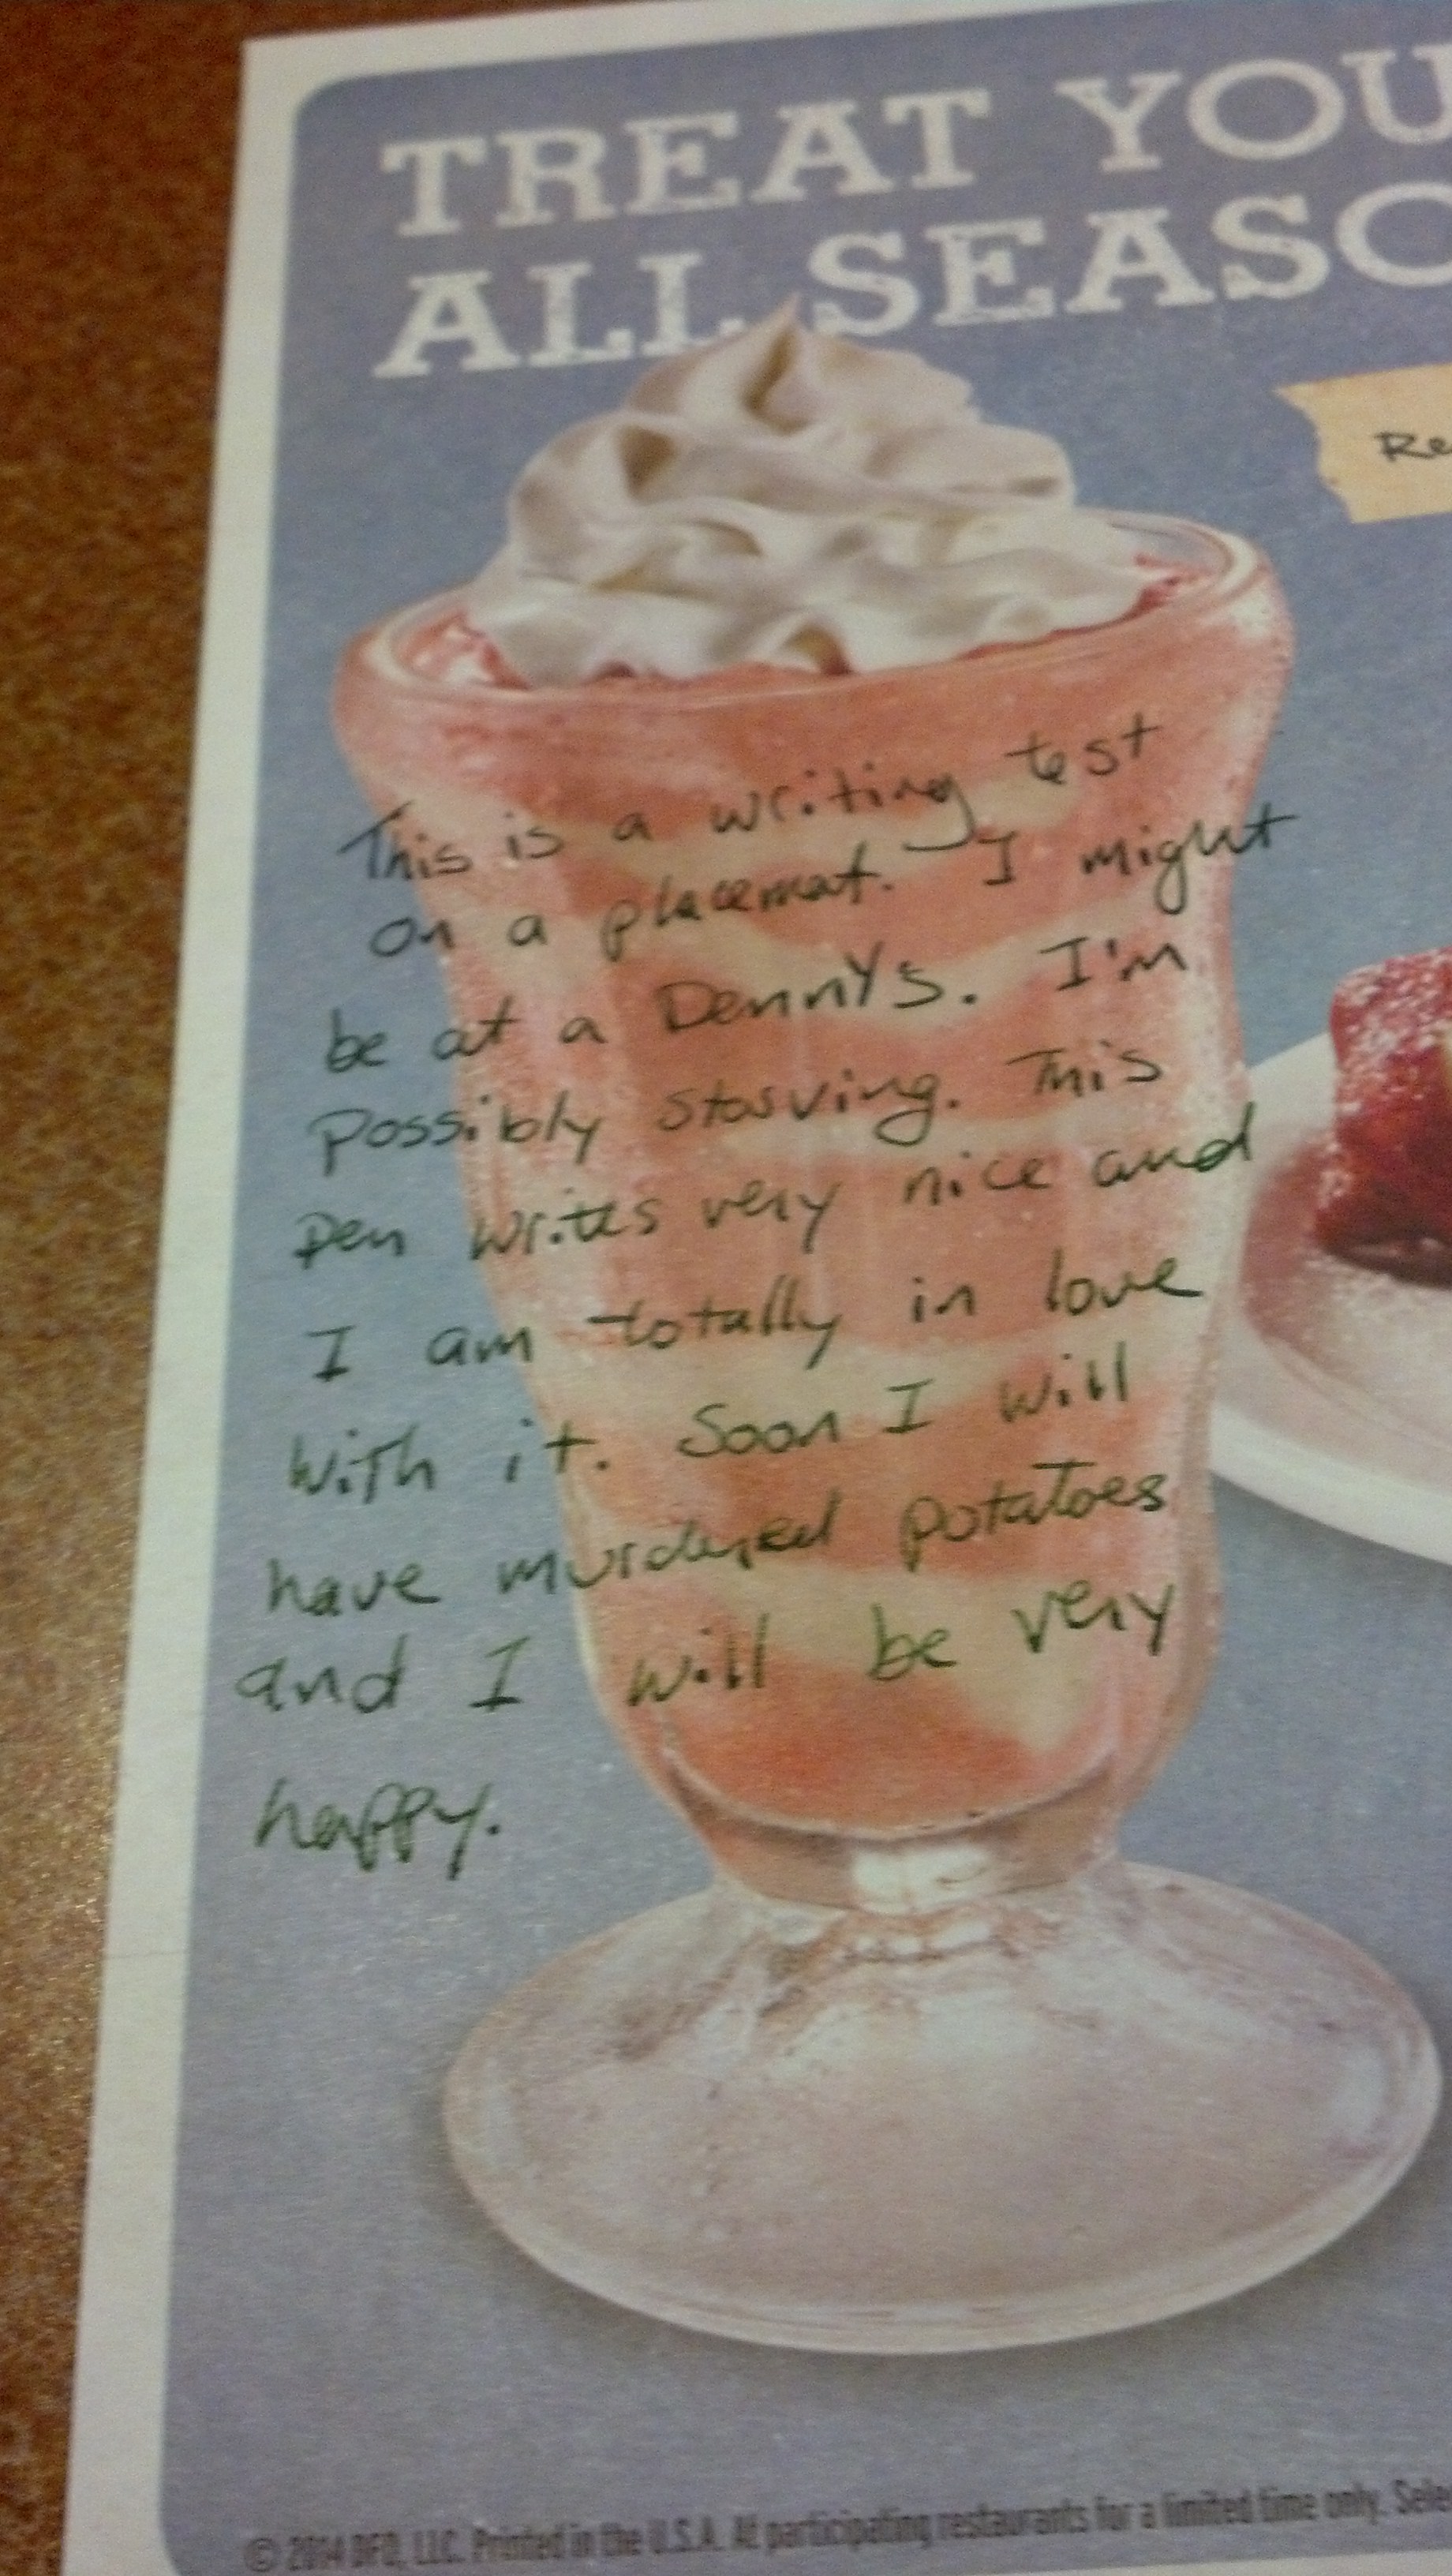 TREAT YOU
ALL SEASO
Re
This is a writing test
on a placemat. I might
be at a Dennys. I'm
possibly starving. This
pen writes very nice and
I am totally in love
with it. Soon I will
have murdered potatoes
and I will be very
happy.
© 2014 DFO, LLC. Printed in the U.S.A. At participating restaurants for a limited time only. Sele